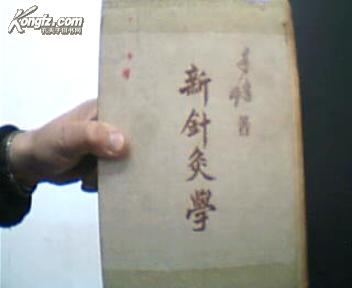 Kongfz.com
孔夫子旧书网
朱璉 著
新針灸學